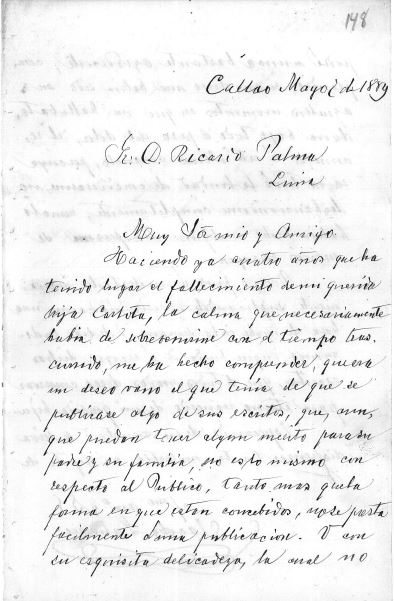 148
Callao Mayo 2 de 1889
Sr. D. Ricardo Palma
Lima
Muy Sr mio y Amigo
Haciendo ya cuatro años que ha
tenido lugar el fallecimiento de mi querida
hija Carlota, la calma que necesariamente
habia de sobrevenirme con el tiempo tras-
currido, me ha hecho comprender, que era
un deseo vano el que tenía de que se
publicase algo de sus escritos, que, aun,
que puedan tener algun merito para su
padre y su familia, no es lo mismo con
respecto al Publico, tanto mas que la
forma en que estan concebidos, no se presta
facilmente á una publicacion. V con
su esquisita delicadeza, la cual no